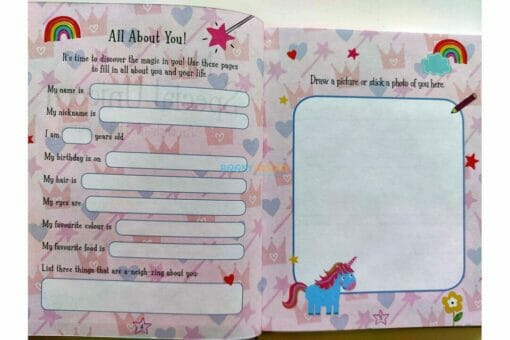 All About You!
It's time to discover the magic in you! Use these pages
to fill in all about you and your life.
My name is
My nickname is
I am years old.
My birthday is on
My hair is
My eyes are
My favourite colour is
My favourite food is
List three things that are a-neigh-zing about you:
4
Draw a picture or stick a photo of you here.
5